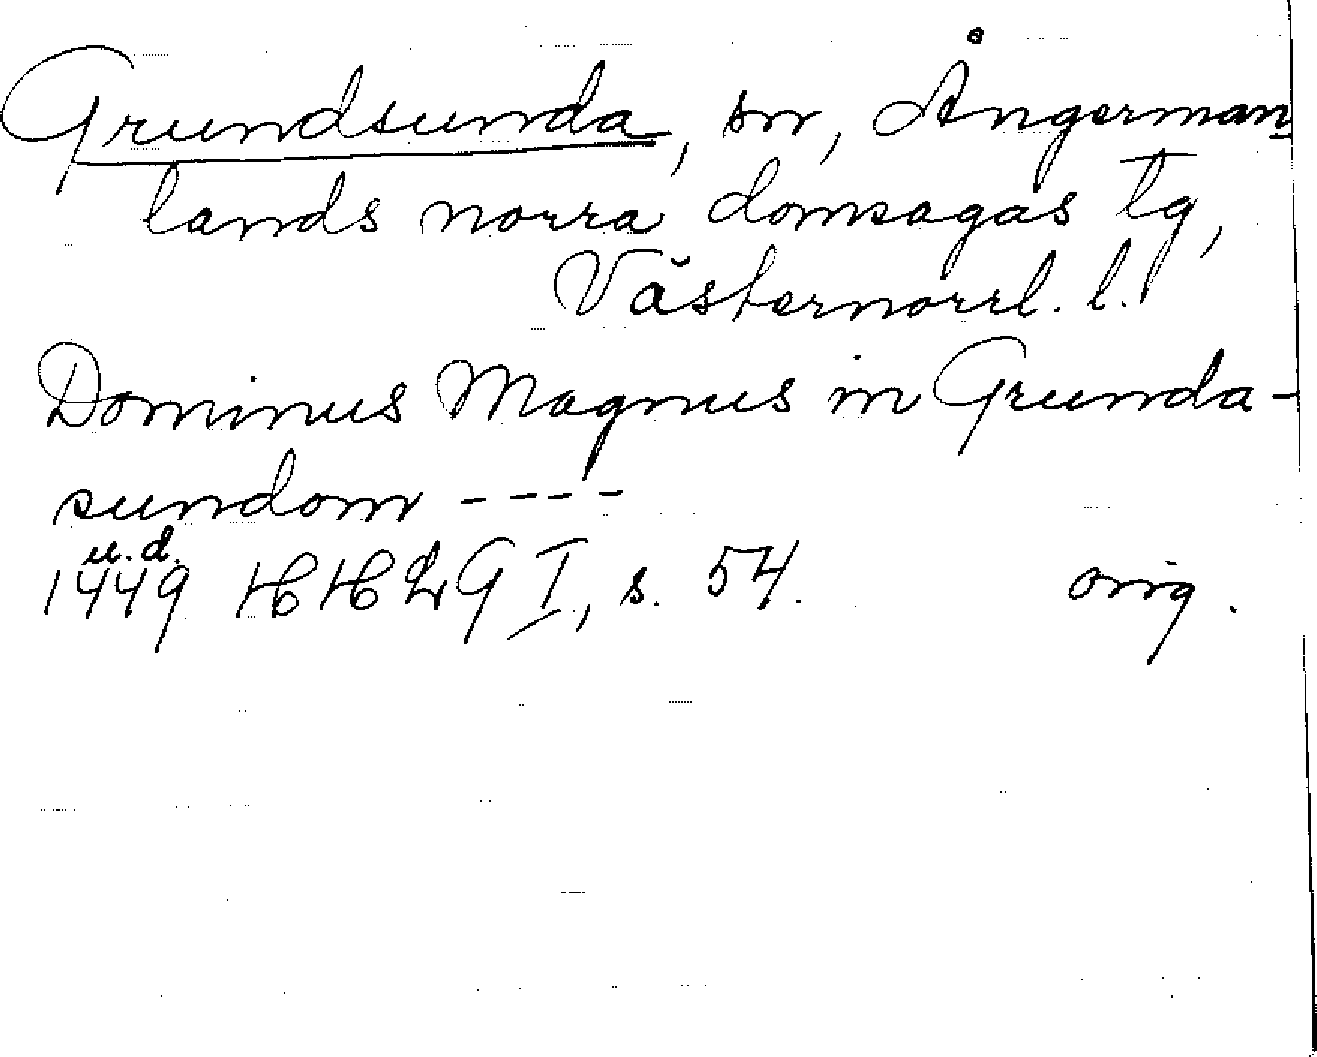 Grundsunda, sn, Ångerman
lands norra domsagas tg,
Västernorrl. l.
Dominus Magnus in Grunda-
sundom ----
u.d.
1449 HHLG I, s. 54. orig.